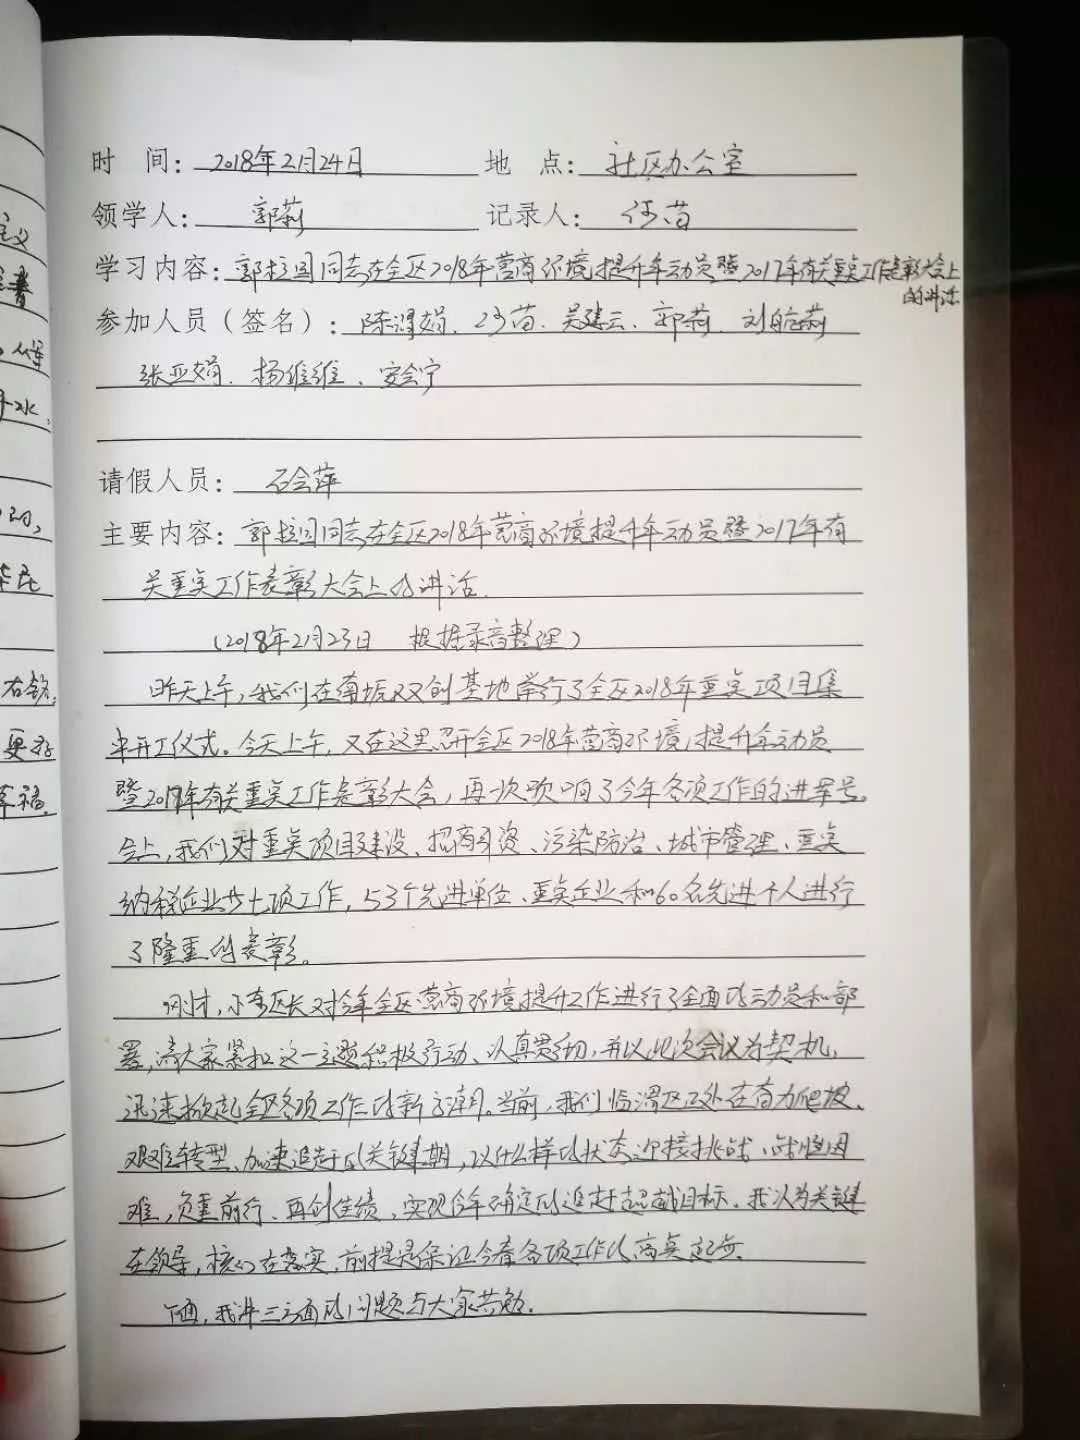 时 间: 2018年2月24日 地 点: 社区办公室
领学人: 郭莉 记录人: 任苗
学习内容: 郭拉团同志在全区2018年营商环境提升年动员暨2017年有关重点工作表彰大会上
的讲话
参加人员(签名): 陈 娟、 苗、吴建云、郭莉、刘 莉
张亚娟、杨维维、安会宁
请假人员: 石会萍
主要内容: 郭拉团同志在全区2018年营商环境提升年动员暨2017年有
关重点工作表彰大会上的讲话.
(2018年2月23日 根据录音整理)
昨天上午,我们在南垢双创基地举行了全区2018年重点项目集
中开工仪式。今天上午,又在这里召开全区2018年营商环境提升年动员
暨2017年有关重点工作表彰大会,再次吹响了今年各项工作的进军号。
会上,我们对重点项目建设、招商引资、污染防治、城市管理、重点
纳税企业共七项工作,53个先进单位、重点企业和60名先进个人进行
了隆重的表彰。
刚才,小春区长对今年全区营商环境提升工作进行了全面的动员和部
署,请大家紧扣这一主题积极行动、认真贯彻,并以此次会议为契机,
迅速掀起全区各项工作的新高潮。当前,我们临渭区正处在奋力爬坡、
艰难转型、加速追赶的关键期,以什么样的状态迎接挑战、战胜困
难,负重前行、再创佳绩,实现今年确定的追赶超越目标。我认为关键
在领导,核心在落实,前提是保证今春各项工作的高点起步。
下面,我讲三方面的问题与大家共勉.